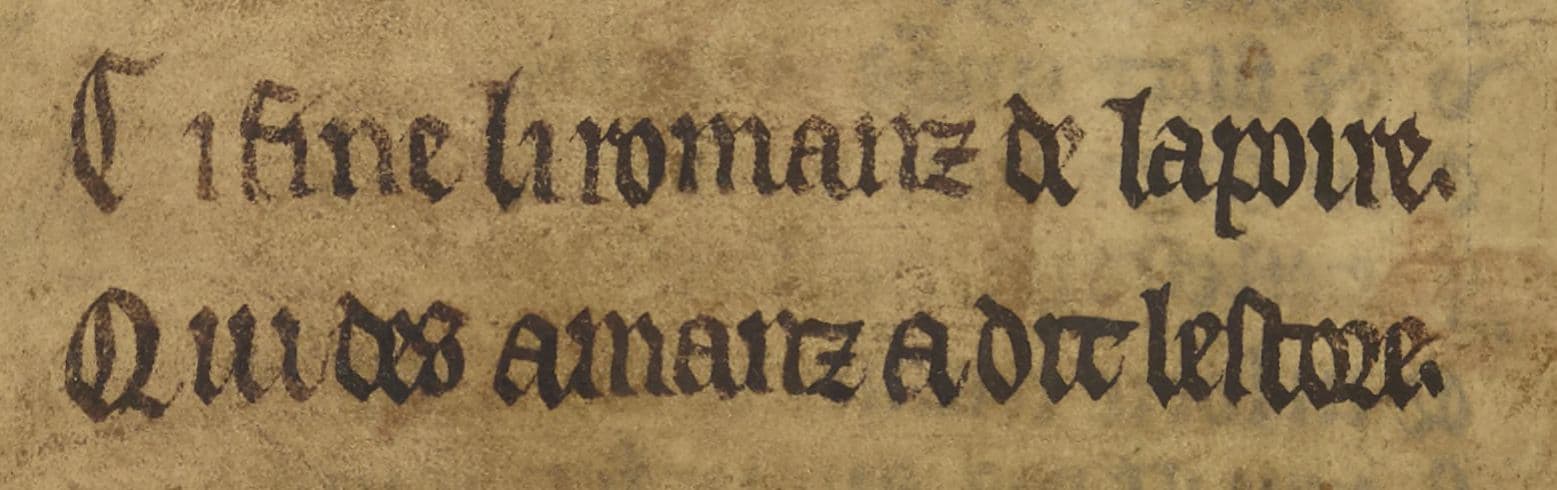 Ci fine li romanz de la poire.
Qui des amanz a dit lestore.